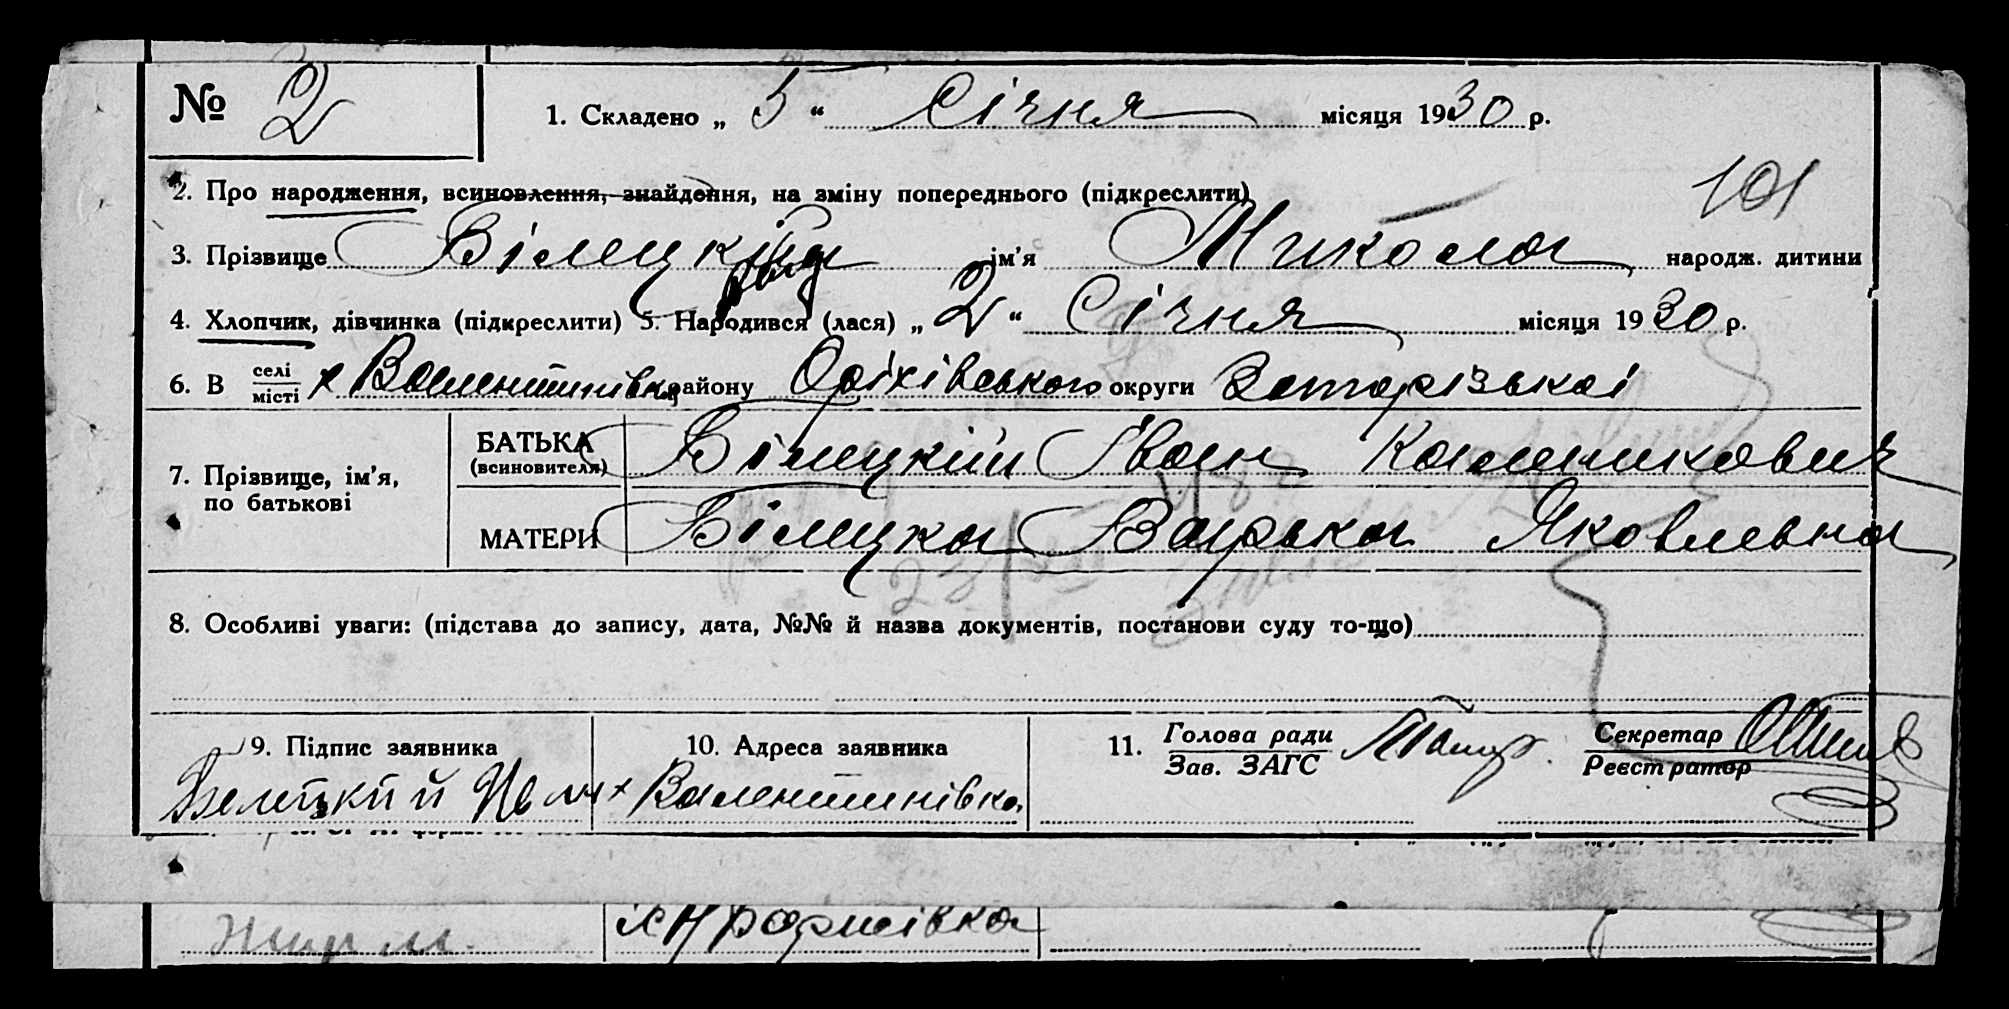 № 2
1. Складено „ 5 “ Січня місяця 1930 р.
2. Про народження, всиновлення, знайдення, на зміну попереднього (підкреслити)
101
3. Прізвище Білецкий ім'я Микола народж. дитини
4. Хлопчик, дівчинка (підкреслити) 5. Народився (лася) „ 2 “ Січня місяця 1930 р.
6. В селі місті х Валентинівка району Оріхівського округи Запорізькоі
7. Прізвище, ім'я, по батькові
БАТЬКА (всиновителя) Білецкий Іван Каленикович
МАТЕРИ Білецка Варька Яковлевна
8. Особливі уваги: (підстава до запису, дата, №№ й назва документів, постанови суду то-що)
9. Підпис заявника
10. Адреса заявника
11. Голова ради Зав. ЗАГС
Секретар Реєстратор
Белецкий Иван
х Валентинівка